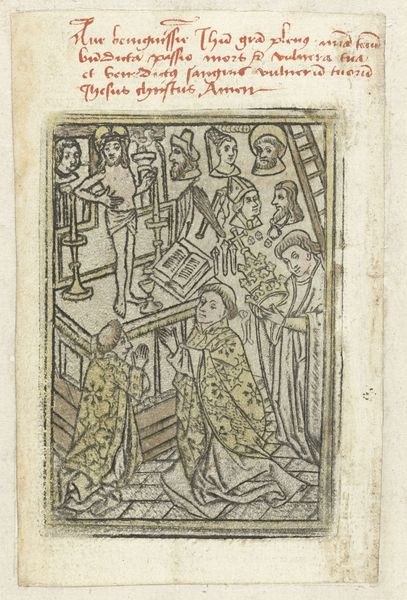 Aue benignissie͂ Ihu͂ gra͂ plenus mia͂ tecu͂
bn͂dicta passio mors et vulnera tua
et bene͂dictꝰ sanguis vulneru͂ tuoru͂
Ihesus christus Amen